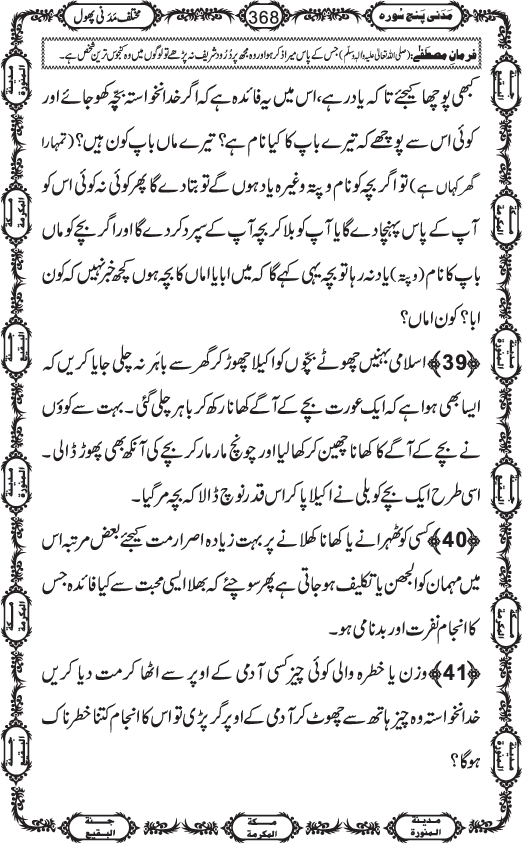 مَدَنی پنج سُورہ
368
مختلف مَدَنی پھول
فرمانِ مصطفٰے: (صلی اللہ تعالیٰ علیہ والہ وسلّم) جس کے پاس میرا ذکر ہوا ور وہ مجھ پر دُرُود شریف نہ پڑھے تو لوگوں میں وہ کنجوس ترین شخص ہے۔
کبھی پوچھا کیجئے تا کہ یاد رہے، اس میں یہ فائدہ ہے کہ اگر خدانخواستہ بچّہ کھو جائے اور
کوئی اس سے پوچھے کہ تیرے باپ کا کیا نام ہے؟ تیرے ماں باپ کون ہیں؟ (تمہارا
گھر کہاں ہے) تو اگر بچہ کو نام و پتہ وغیرہ یاد ہوں گے تو بتا دے گا پھر کوئی نہ کوئی اس کو
آپ کے پاس پہنچا دے گا یا آپ کو بلا کر بچہ آپ کے سپرد کر دے گا اور اگر بچے کو ماں
باپ کا نام (و پتہ) یاد نہ رہا تو بچہ یہی کہے گا کہ میں ابا یا اماں کا بچہ ہوں کچھ خبر نہیں کہ کون
ابا؟ کون اماں؟
﴿39﴾ اسلامی بہنیں چھوٹے بچّوں کو اکیلا چھوڑ کر گھر سے باہر نہ چلی جایا کریں کہ
ایسا بھی ہوا ہے کہ ایک عورت بچے کے آگے کھانا رکھ کر باہر چلی گئی۔ بہت سے کوؤں
نے بچے کے آگے کا کھانا چھین کر کھا لیا اور چونچ مار مار کر بچے کی آنکھ بھی پھوڑ ڈالی۔
اسی طرح ایک بچے کو بلی نے اکیلا پا کر اس قدر نوچ ڈالا کہ بچہ مر گیا۔
﴿40﴾ کسی کو ٹھہرانے یا کھانا کھلانے پر بہت زیادہ اصرار مت کیجئے بعض مرتبہ اس
میں مہمان کو الجھن یا تکلیف ہو جاتی ہے پھر سوچئے کہ بھلا ایسی محبت سے کیا فائدہ جس
کا انجام نفرت اور بدنامی ہو۔
﴿41﴾ وزن یا خطرہ والی کوئی چیز کسی آدمی کے اوپر سے اٹھا کر مت دیا کریں
خدانخواستہ وہ چیز ہاتھ سے چھوٹ کر آدمی کے اوپر گر پڑی تو اس کا انجام کتنا خطرناک
ہوگا؟
مدینۃ المنورۃ
مکۃ المکرمۃ
جنۃ البقیع
مدینۃ المنورۃ
مکۃ المکرمۃ
جنۃ البقیع
جنۃ البقیع
مکۃ المکرمۃ
مدینۃ المنورۃ
جنۃ البقیع
مکۃ المکرمۃ
مدینۃ المنورۃ
مدینۃ المنورۃ
مکۃ المکرمۃ
جنۃ البقیع